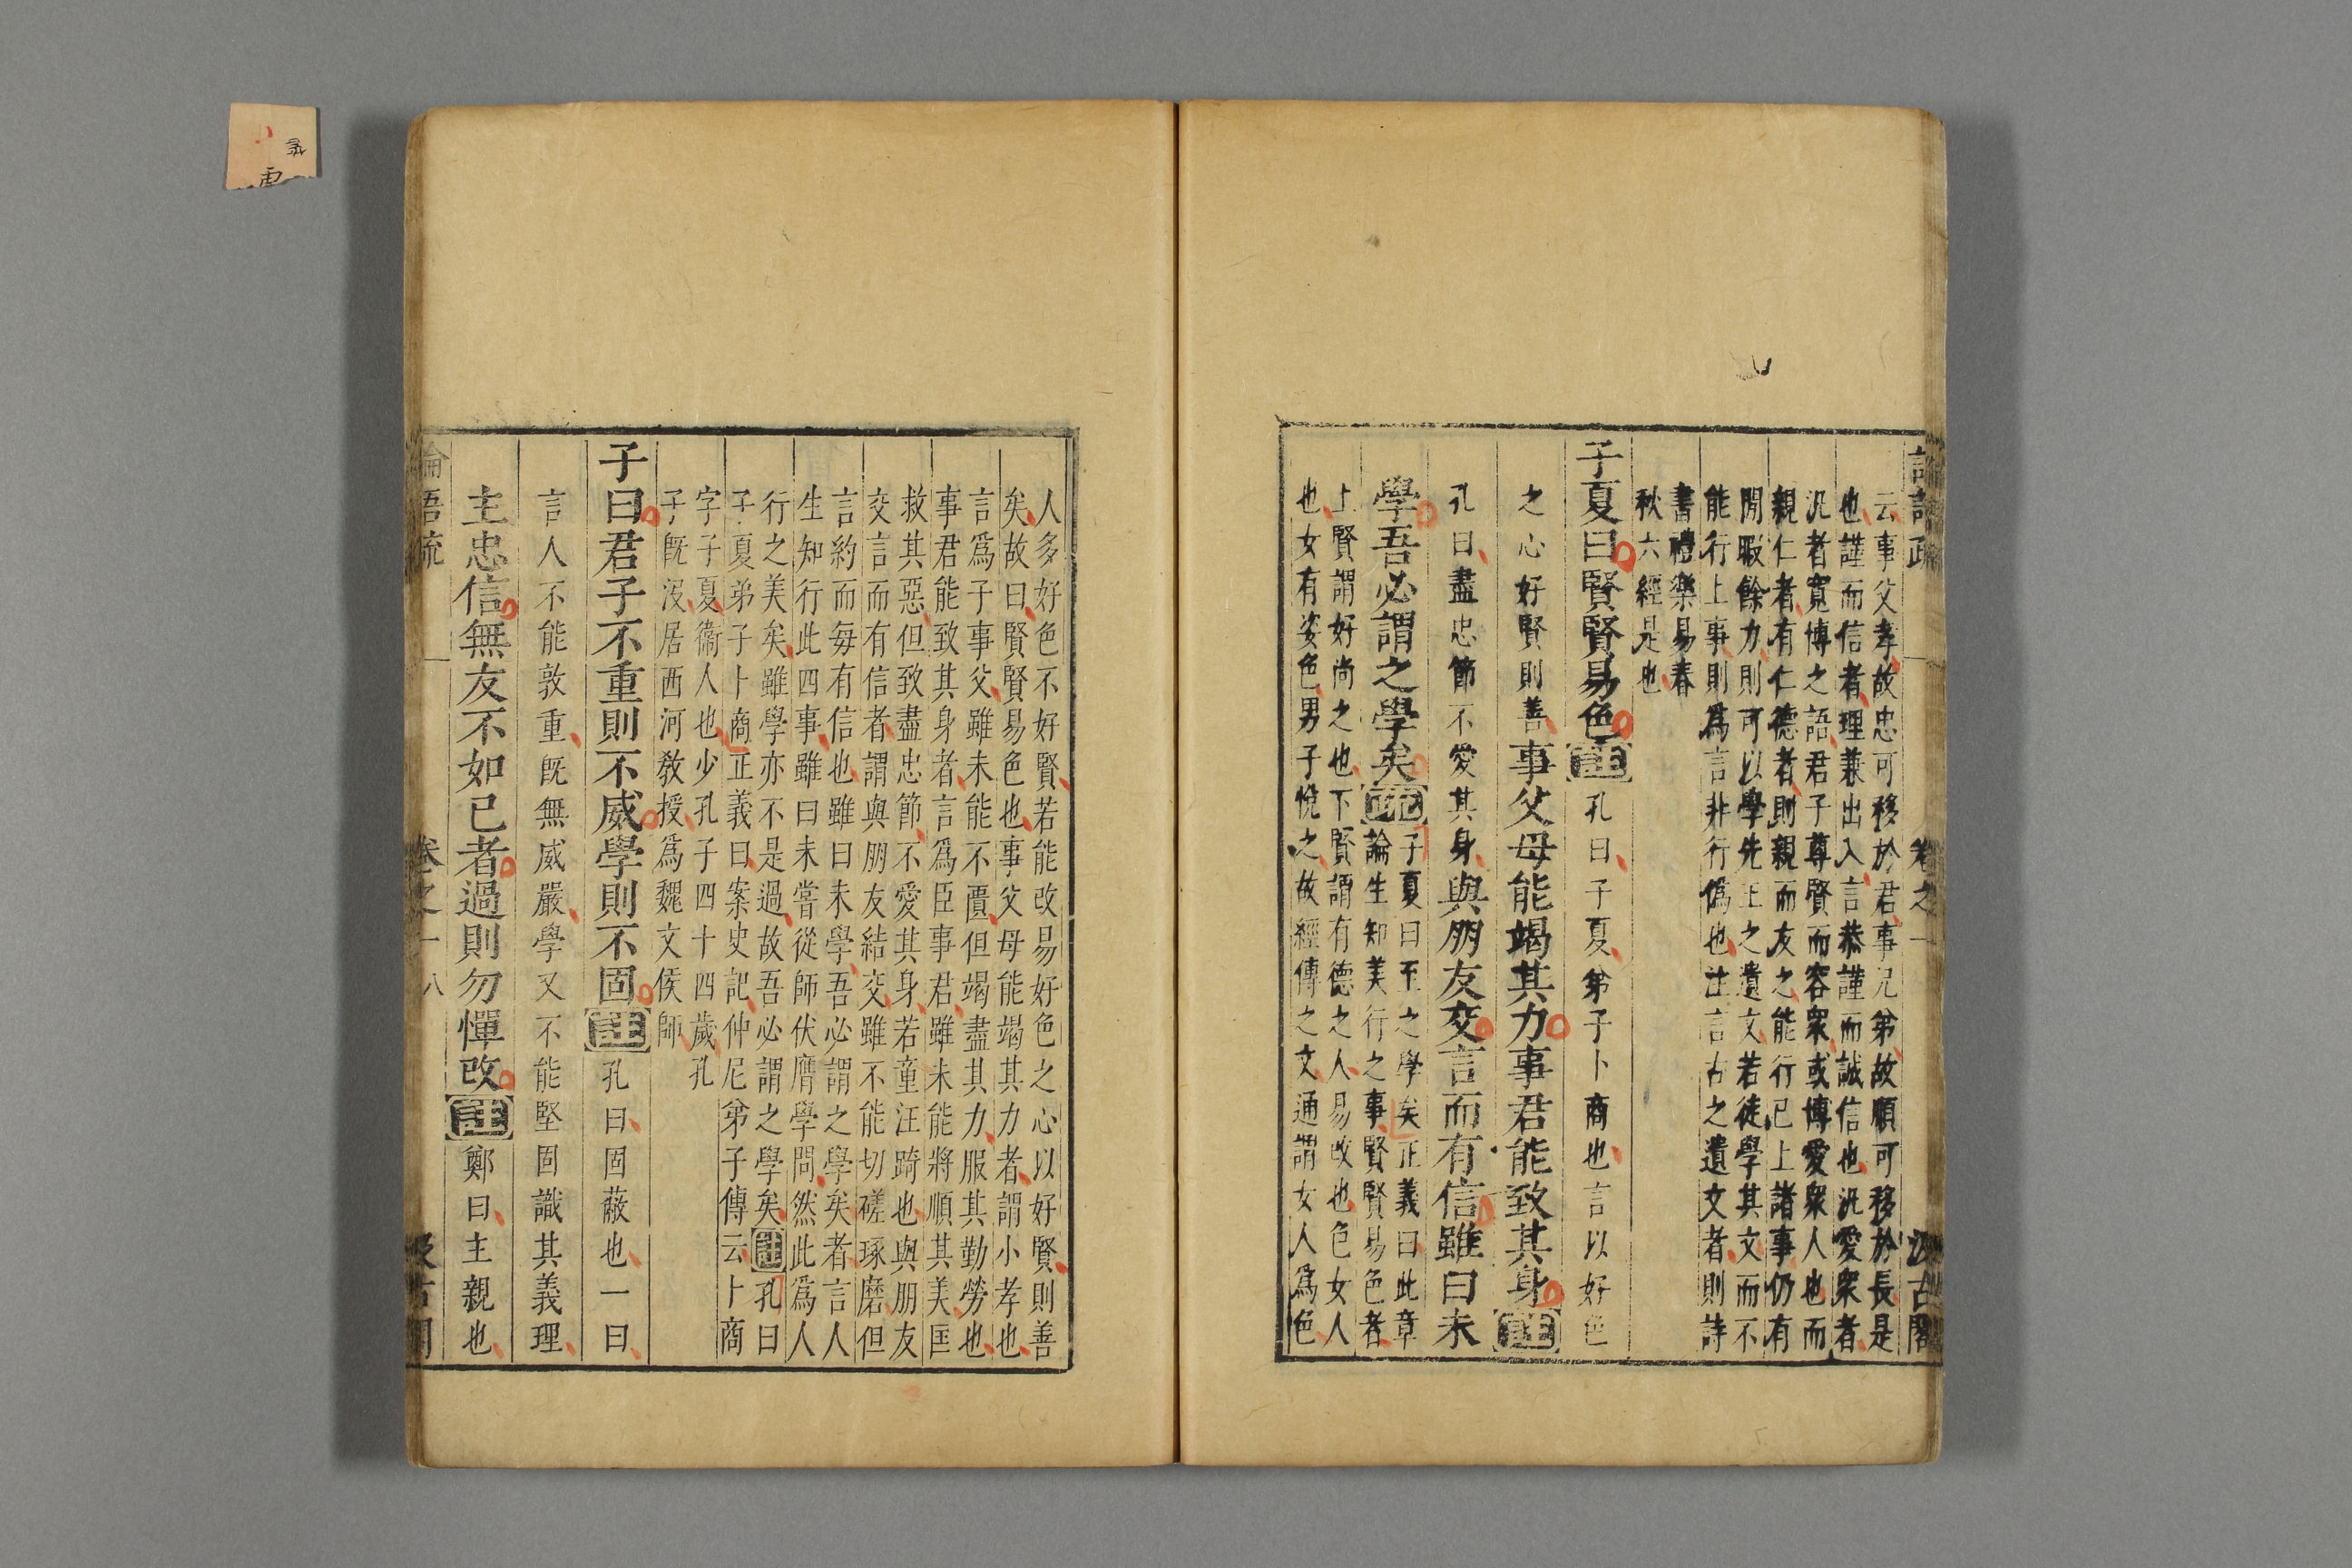 云事父孝故忠可移於君事兄弟故順可移於長是
也謹而信者理兼出入言恭謹而誠信也汎愛衆者
汎者寛博之語君子尊賢而容衆或博愛衆人也而
親仁者有仁德者則親而友之能行已上諸事仍有
閒暇餘力則可以學先王之遺文若徒學其文而不
能行上事則爲言非行僞也注言古之遺文者則詩
書禮樂易春
秋六經是也
子夏曰賢賢易色註孔曰子夏弟子卜商也言以好色
之心好賢則善事父母能竭其力事君能致其身註
孔曰盡忠節不愛其身與朋友交言而有信雖曰未
學吾必謂之學矣疏
子夏曰至之學矣正義曰此章
論生知美行之事賢賢易色者
上賢謂好尚之也下賢謂有德之人易改也色女人
也女有姿色男子悅之故經傳之文通謂女人爲色
卷之一
汲古閣
人多好色不好賢若能改易好色之心以好賢則善
矣故曰賢賢易色也事父母能竭其力者謂小孝也
言爲子事父雖未能不匱但竭盡其力服其勤勞也
事君能致其身者言爲臣事君雖未能將順其美匡
救其惡但致盡忠節不愛其身若童汪踦也與朋友
交言而有信者謂與朋友結交雖不能切磋琢磨但
言約而每有信也雖曰未學吾必謂之學矣者言人
生知行此四事雖曰未嘗從師伏膺學問然此爲人
行之美矣雖學亦不是過故吾必謂之學矣註孔曰
子夏弟子卜商正義曰案史記仲尼弟子傳云卜商
字子夏衞人也少孔子四十四歲孔
子旣沒居西河敎授爲魏文侯師
子曰君子不重則不威學則不固註孔曰固蔽也一曰
言人不能敦重旣無威嚴學又不能堅固識其義理
主忠信無友不如已者過則勿憚改註鄭曰主親也
論語疏
卷之一
八